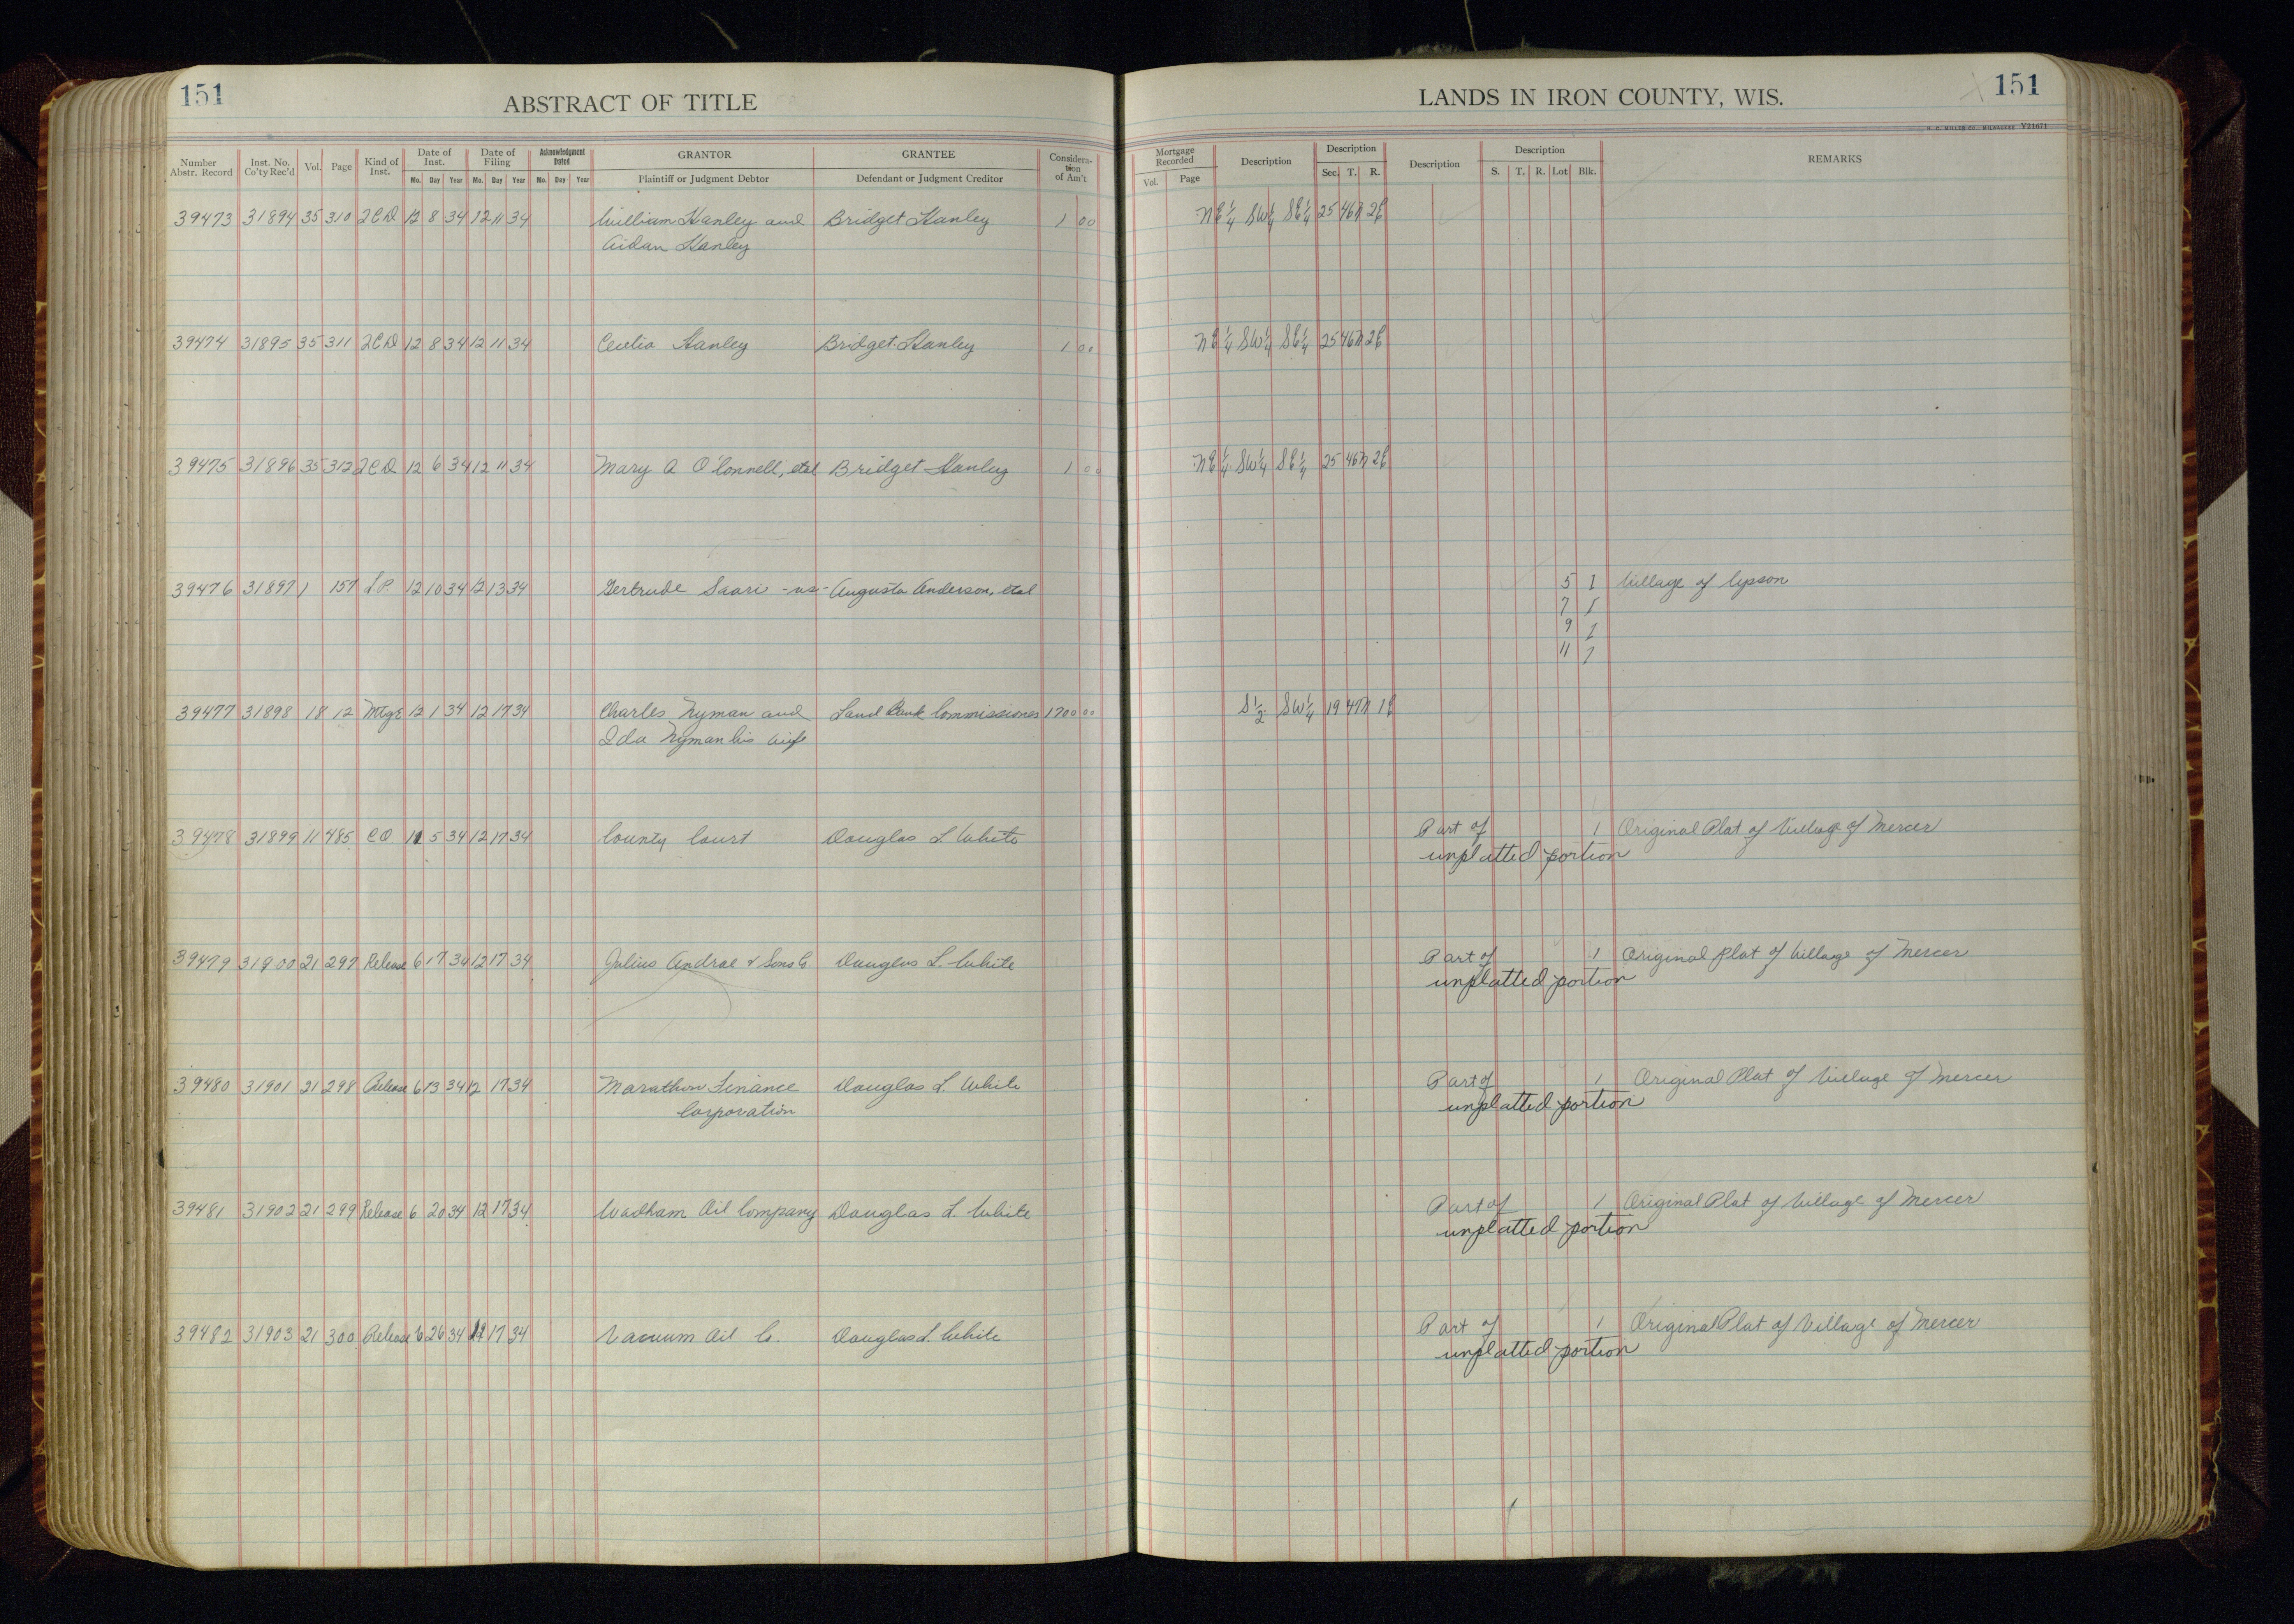 151
ABSTRACT OF TITLE
LANDS IN IRON COUNTY, WIS.
151
H. C. MILLER CO., MILWAUKEE Y21671
Number Abstr. Record Inst. No. Co'ty Rec'd Vol. Page Kind of Inst. Date of Inst. Mo. Day Year Date of Filing Mo. Day Year Acknowledgment Dated Mo. Day Year GRANTOR Plaintiff or Judgment Debtor GRANTEE Defendant or Judgment Creditor Considera-tion of Am't Mortgage Recorded Vol. Page Description Description Sec. T. R. Description Description S. T. R. Lot Blk. REMARKS
39473 31894 35 310 QCD 12 8 34 12 11 34 William Hanley and Bridget Hanley 1 00 NE 1/4 SW 1/4 SE 1/4 25 46N 2E
Aidan Hanley
39474 31895 35 311 QCD 12 8 34 12 11 34 Cecelia Hanley Bridget Hanley 1 00 NE 1/4 SW 1/4 SE 1/4 25 46N 2E
39475 31896 35 312 QCD 12 6 34 12 11 34 Mary A O'Connell, etal Bridget Hanley 1 00 NE 1/4 SW 1/4 SE 1/4 25 46N 2E
39476 31897 1 157 L.P. 12 10 34 12 13 34 Gertrude Saari -vs- Augusta Anderson, etal 5 1 Village of Upson
7 1
9 1
11 1
39477 31898 18 12 Mtge 12 1 34 12 17 34 Charles Nyman and Land Bank Commissioner 1700 00 S 1/2 SW 1/4 19 47N 1E
Ida Nyman his wife
39478 31899 11 485 CO 11 5 34 12 17 34 County Court Douglas L. White Part of 1 Original Plat of Village of Mercer
unplatted portion
39479 31900 21 297 Release 6 17 34 12 17 34 Julius Andrae & Sons Co Douglas L. White Part of 1 Original Plat of Village of Mercer
unplatted portion
39480 31901 21 298 Release 6 13 34 12 17 34 Marathon Finance Douglas L. White Part of 1 Original Plat of Village of Mercer
Corporation unplatted portion
39481 31902 21 299 Release 6 20 34 12 17 34 Wadham Oil Company Douglas L. White Part of 1 Original Plat of Village of Mercer
unplatted portion
39482 31903 21 300 Release 6 26 34 12 17 34 Vacuum Oil Co. Douglas L. White Part of 1 Original Plat of Village of Mercer
unplatted portion